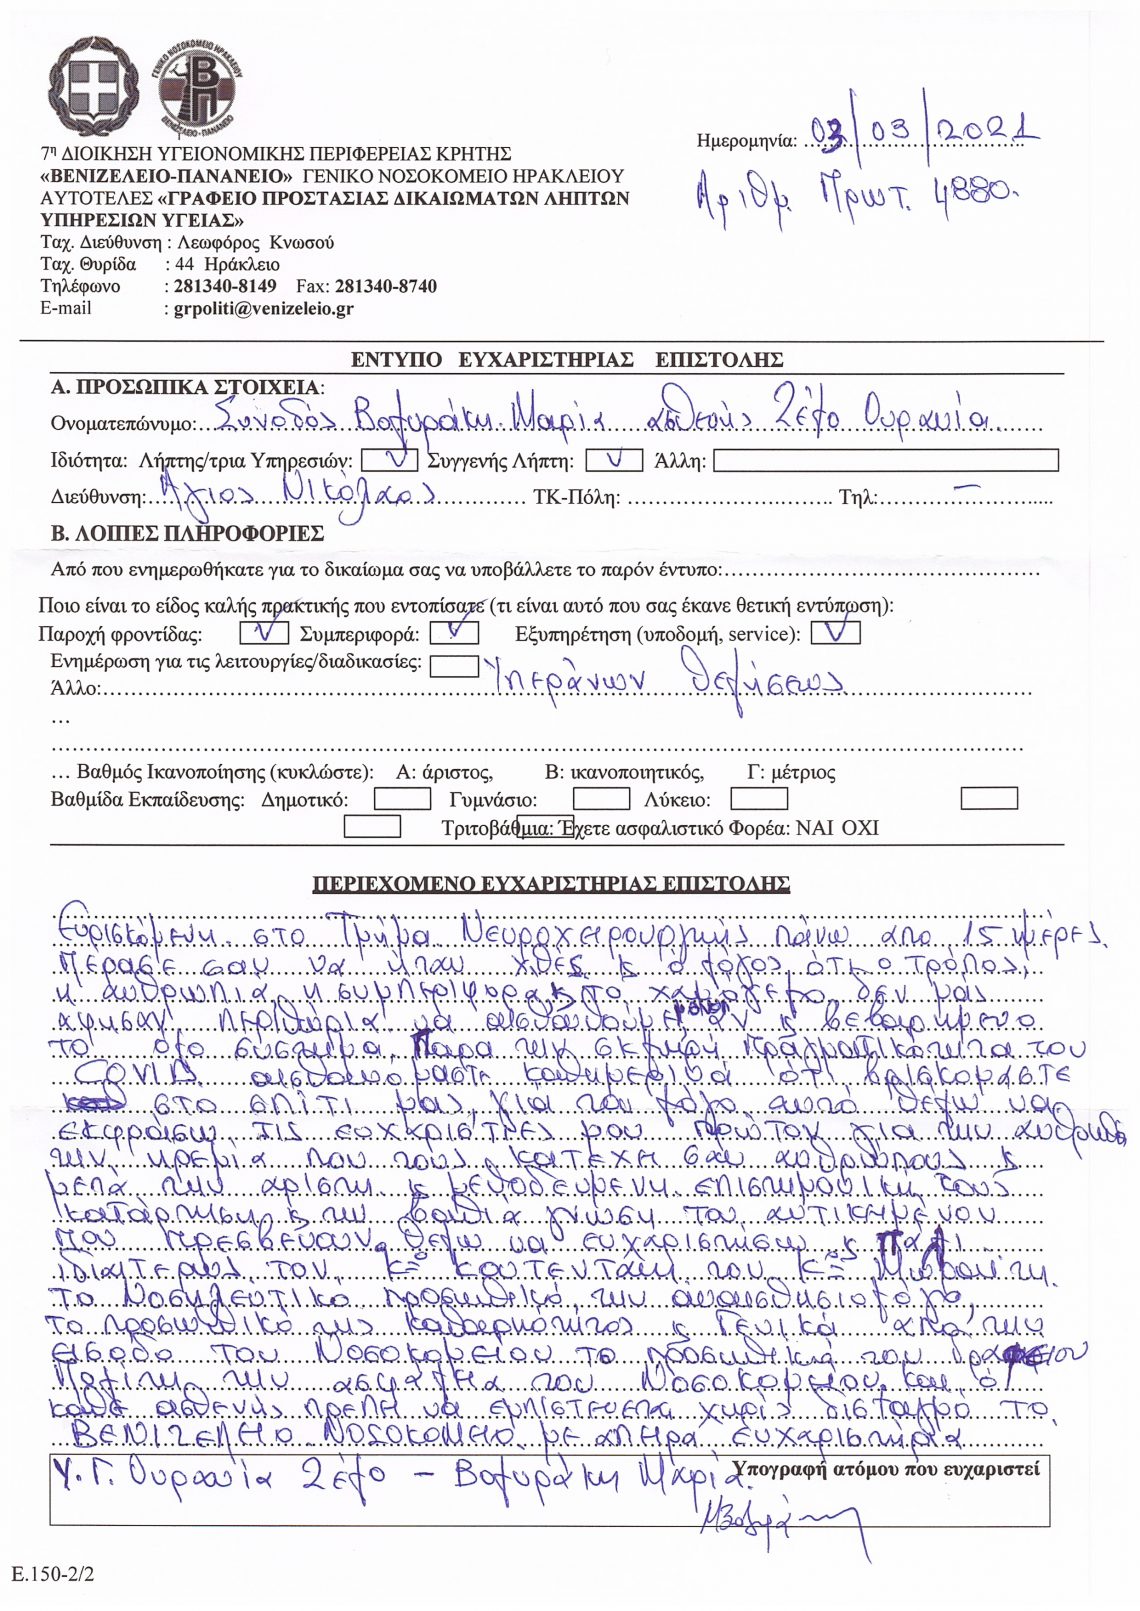 ΓΕΝΙΚΟ ΝΟΣΟΚΟΜΕΙΟ ΗΡΑΚΛΕΙΟΥ
ΒΠ
ΒΕΝΙΖΕΛΕΙΟ - ΠΑΝΑΝΕΙΟ
Ημερομηνία: 03/03/2021
7η ΔΙΟΙΚΗΣΗ ΥΓΕΙΟΝΟΜΙΚΗΣ ΠΕΡΙΦΕΡΕΙΑΣ ΚΡΗΤΗΣ
«ΒΕΝΙΖΕΛΕΙΟ-ΠΑΝΑΝΕΙΟ» ΓΕΝΙΚΟ ΝΟΣΟΚΟΜΕΙΟ ΗΡΑΚΛΕΙΟΥ
Αριθμ. Πρωτ. 4880.
ΑΥΤΟΤΕΛΕΣ «ΓΡΑΦΕΙΟ ΠΡΟΣΤΑΣΙΑΣ ΔΙΚΑΙΩΜΑΤΩΝ ΛΗΠΤΩΝ
ΥΠΗΡΕΣΙΩΝ ΥΓΕΙΑΣ»
Ταχ. Διεύθυνση : Λεωφόρος Κνωσού
Ταχ. Θυρίδα : 44 Ηράκλειο
Τηλέφωνο : 281340-8149 Fax: 281340-8740
E-mail : grpoliti@venizeleio.gr
ΕΝΤΥΠΟ ΕΥΧΑΡΙΣΤΗΡΙΑΣ ΕΠΙΣΤΟΛΗΣ
Α. ΠΡΟΣΩΠΙΚΑ ΣΤΟΙΧΕΙΑ:
Ονοματεπώνυμο: Συνοδός Βολυράκη Μαρία ασθενής Ζέλο Ουρανία
Ιδιότητα: Λήπτης/τρια Υπηρεσιών: √ Συγγενής Λήπτη: √ Άλλη:
Διεύθυνση: Άγιος Νικόλαος ΤΚ-Πόλη: Τηλ: –
Β. ΛΟΙΠΕΣ ΠΛΗΡΟΦΟΡΙΕΣ
Από που ενημερωθήκατε για το δικαίωμα σας να υποβάλλετε το παρόν έντυπο:
Ποιο είναι το είδος καλής πρακτικής που εντοπίσατε (τι είναι αυτό που σας έκανε θετική εντύπωση):
Παροχή φροντίδας: √ Συμπεριφορά: √ Εξυπηρέτηση (υποδομή, service): √
Ενημέρωση για τις λειτουργίες/διαδικασίες:
Άλλο: Υπεράνων θελήσεως
…
… Βαθμός Ικανοποίησης (κυκλώστε): Α: άριστος, Β: ικανοποιητικός, Γ: μέτριος
Βαθμίδα Εκπαίδευσης: Δημοτικό: Γυμνάσιο: Λύκειο:
Τριτοβάθμια: Έχετε ασφαλιστικό Φορέα: ΝΑΙ ΟΧΙ
ΠΕΡΙΕΧΟΜΕΝΟ ΕΥΧΑΡΙΣΤΗΡΙΑΣ ΕΠΙΣΤΟΛΗΣ
Ευρισκόμενη στο Τμήμα Νευροχειρουργικής πάνω απο 15 μέρες
Πέρασε σαν να ήταν χθές κ ο λόγος, ότι ο τρόπος,
η ανθρωπιά, η συμπεριφορα κ το χαμόγελο δεν μας
αφησαν περιθώρια να αισθανθούμε μόνοι αν κ βεβαρημενο
το όλο σύστημα. Παρα την σκληρή πραγματικότητα του
COVID αισθανομαστε καθημερινά ότι βρισκομαστε
στο σπίτι μας, για τον λόγο αυτό θέλω να
εκφράσω τις ευχαριστίες μου πρώτον για την ανθρωπιά
την ηρεμία που τους κατέχη σαν ανθρώπους κ
μετα την αρίστη κ επιστημονική τους
κατάρτηση κ την βαθιά γνώση του αντικημένου
που πρεσβεύουν. θέλω να ευχαριστησω κ πάλι
ιδιαιτέρως τον κ.
το Νοσηλευτικό προσωπικό, την αναισθησιολόγο,
το προσωπικό της καθαριότητος κ Γενικά απο την
εισοδο του Νοσοκομείου το προσωπικό του Γραφείου
την ασφάλεια του Νοσοκομείου και ο
κάθε ασθενής πρέπη να εμπιστευεται χωρίς δισταγμο το
ΒΕΝΙΖΕΛΗΟ ΝΟΣΟΚΟΜΕΙΟ με απηρα ευχαριστηρια
Υ.Γ. Ουρανία Ζέλο – Βολυράκη Μαρία. Υπογραφή ατόμου που ευχαριστεί
Ε.150-2/2